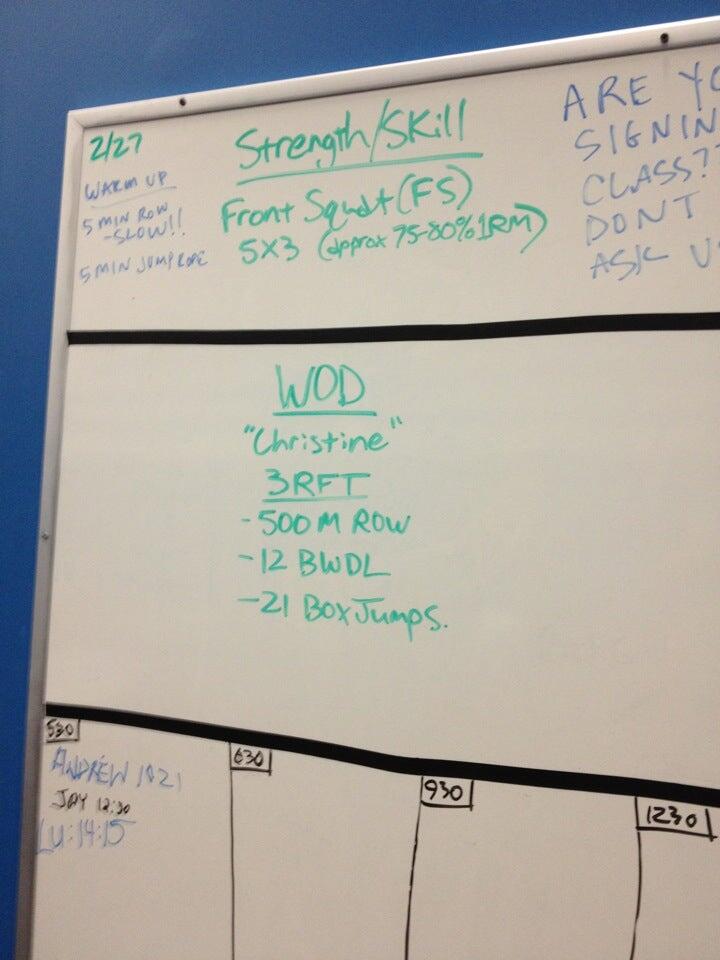 2/27
WARM UP
5 MIN ROW
-SLOW!!
5 MIN JUMP ROPE
Strength/Skill
Front Squat (FS)
5X3 (approx 75-80% 1RM)
ARE YO
SIGNIN
CLASS??
DONT
ASK U
WOD
"Christine"
3RFT
-500 M ROW
-12 BWDL
-21 Box Jumps.
530
ANDREW 1021
JAY 12:30
LU: 14:15
630
930
1230